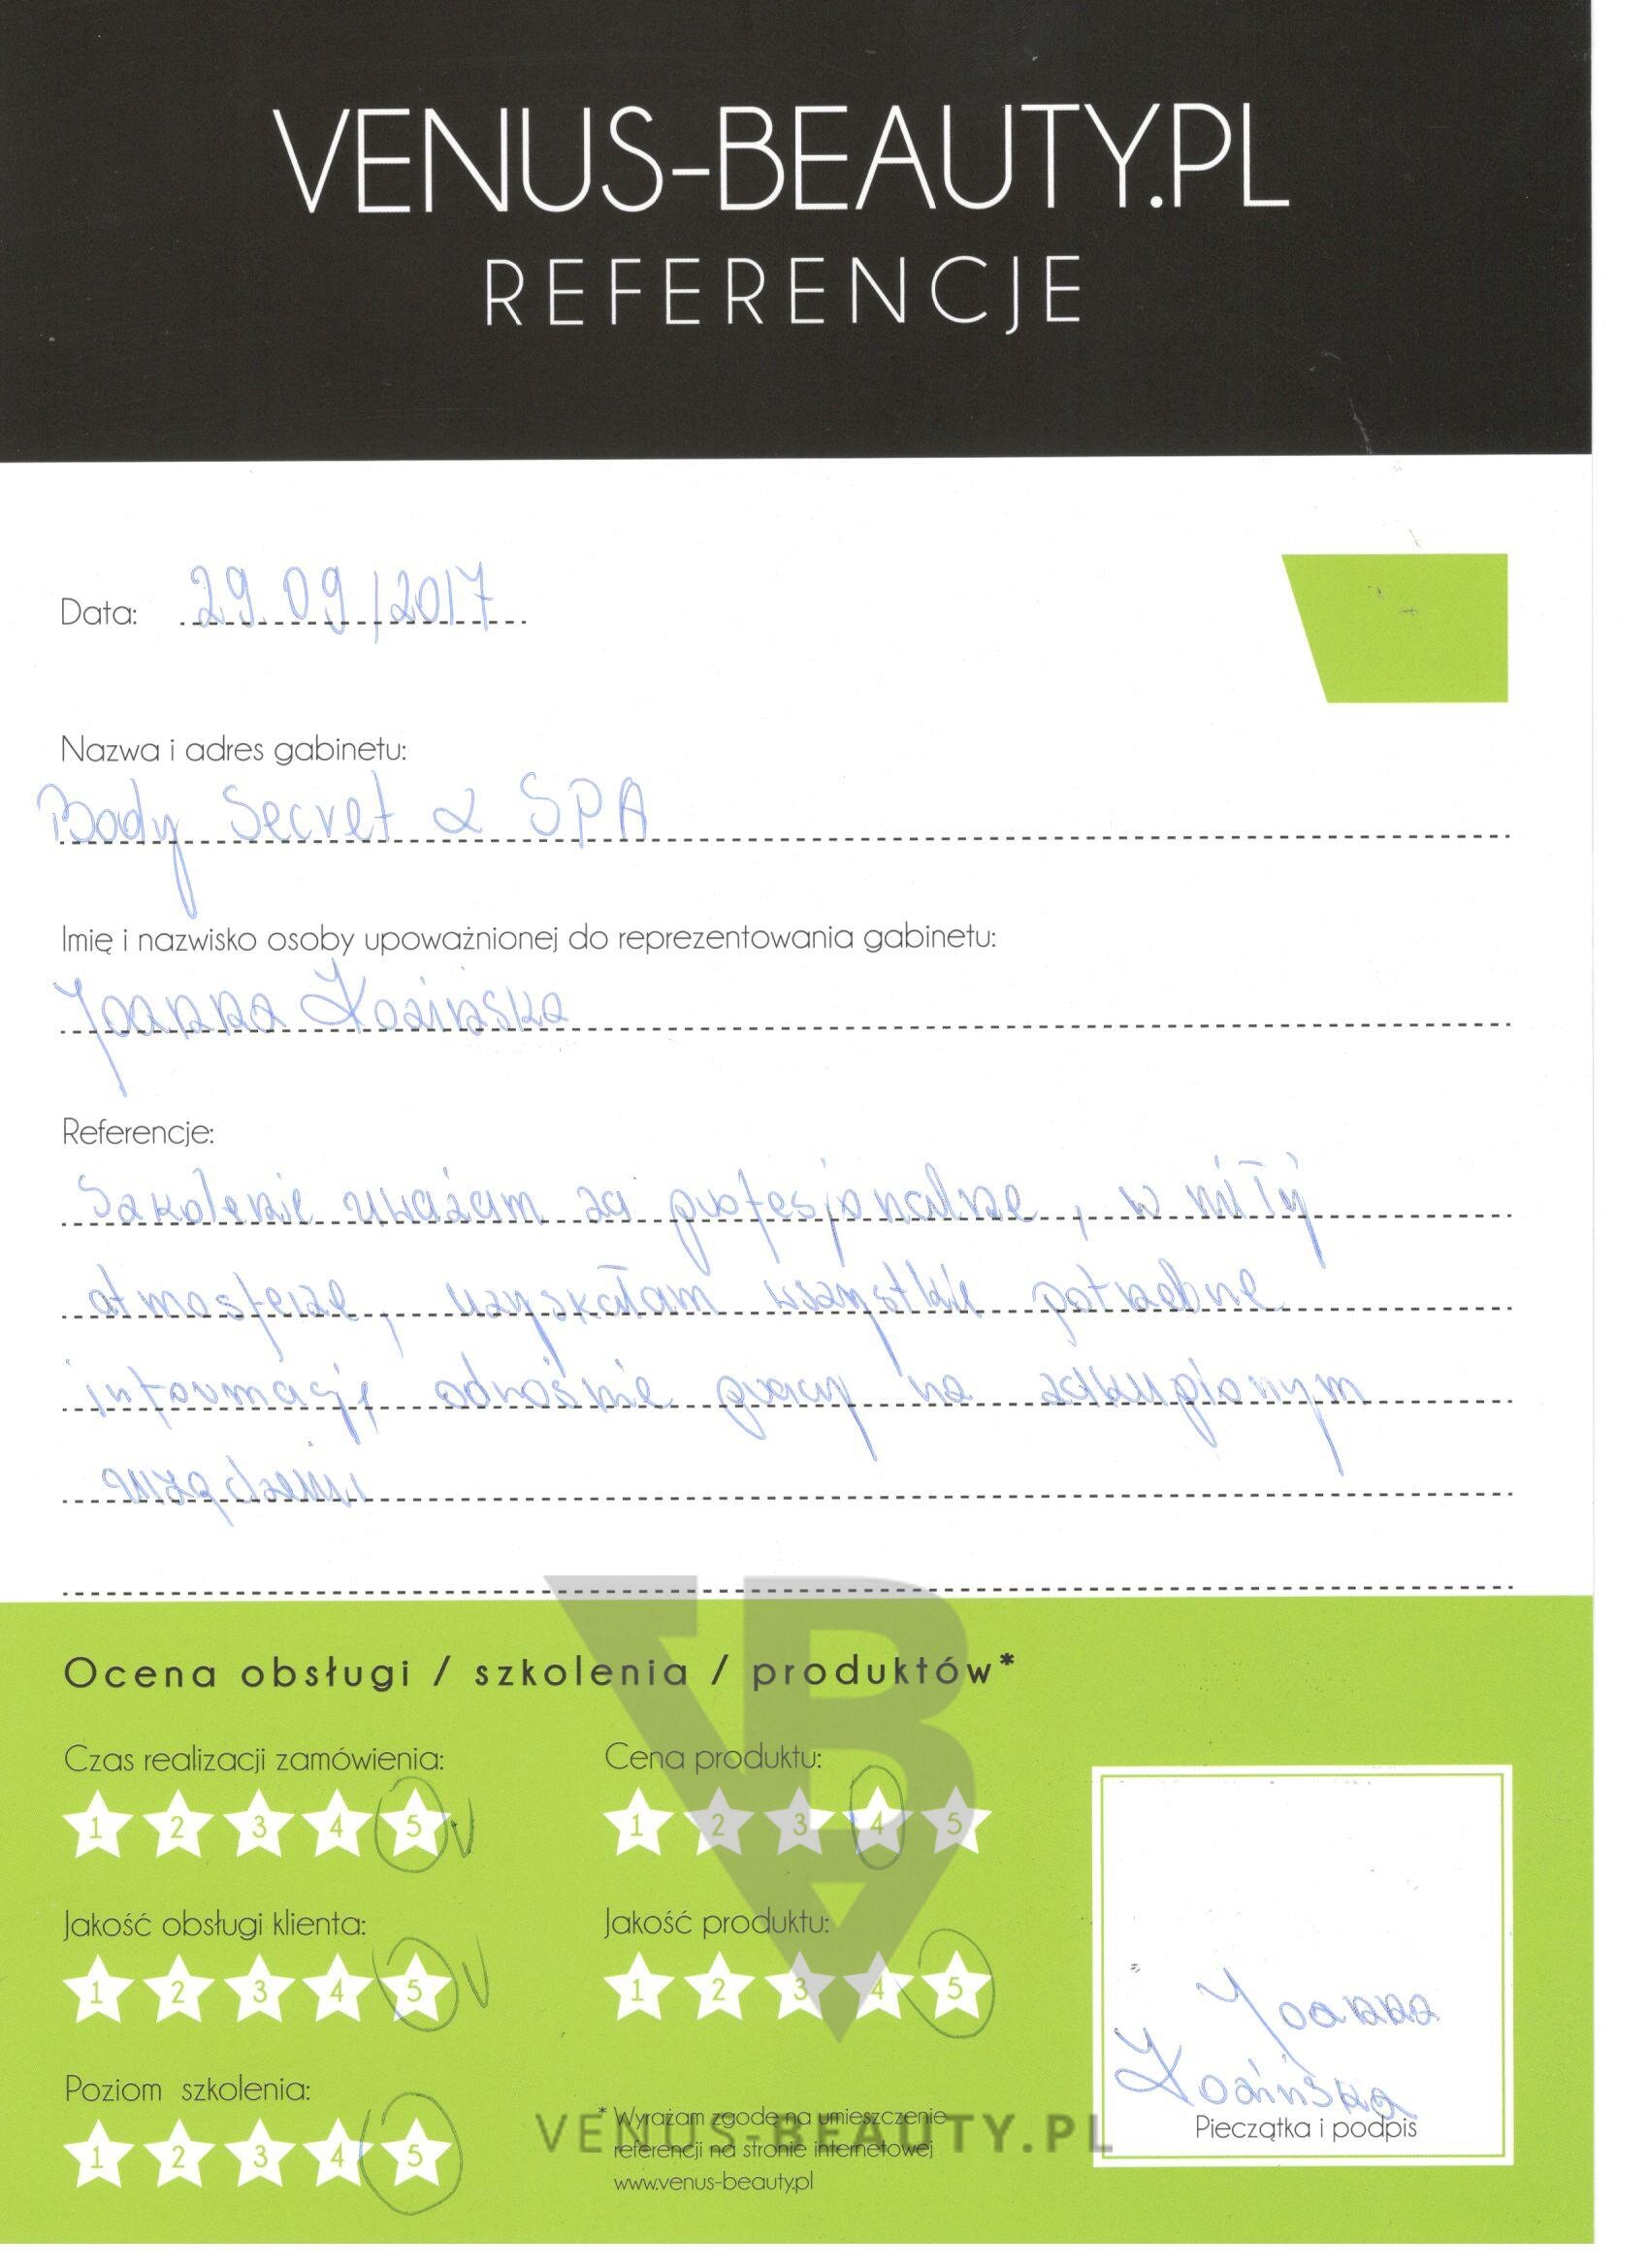 VENUS-BEAUTY.PL
REFERENCJE
Data: 29.09/2017
Nazwa i adres gabinetu:
Body Secret & SPA
Imię i nazwisko osoby upoważnionej do reprezentowania gabinetu:
Joanna
Referencje:
Szkolenie uważam za profesjonalne, w miłỳ
atmosferze, uzyskałam wszystkie potrzebne
informację odnośnie pracy na zakupionym
urządzeniu
Ocena obsługi / szkolenia / produktów*
Czas realizacji zamówienia:
1 2 3 4 5
Cena produktu:
1 2 3 4 5
Jakość obsługi klienta:
1 2 3 4 5
Jakość produktu:
1 2 3 4 5
Poziom szkolenia:
1 2 3 4 5
* Wyrażam zgodę na umieszczenie
referencji na stronie internetowej
www.venus-beauty.pl
VENUS-BEAUTY.PL
Joanna
Pieczątka i podpis